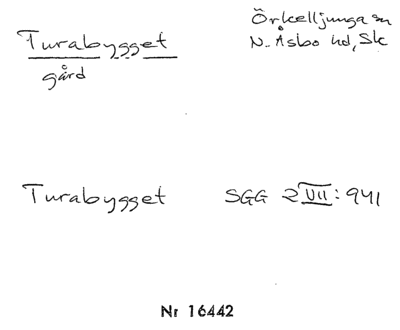 Turabygget
gård
Örkelljunga sn
N. Åsbo hd, Sk
Turabygget SGG 2 VII: 941
Nr 16442